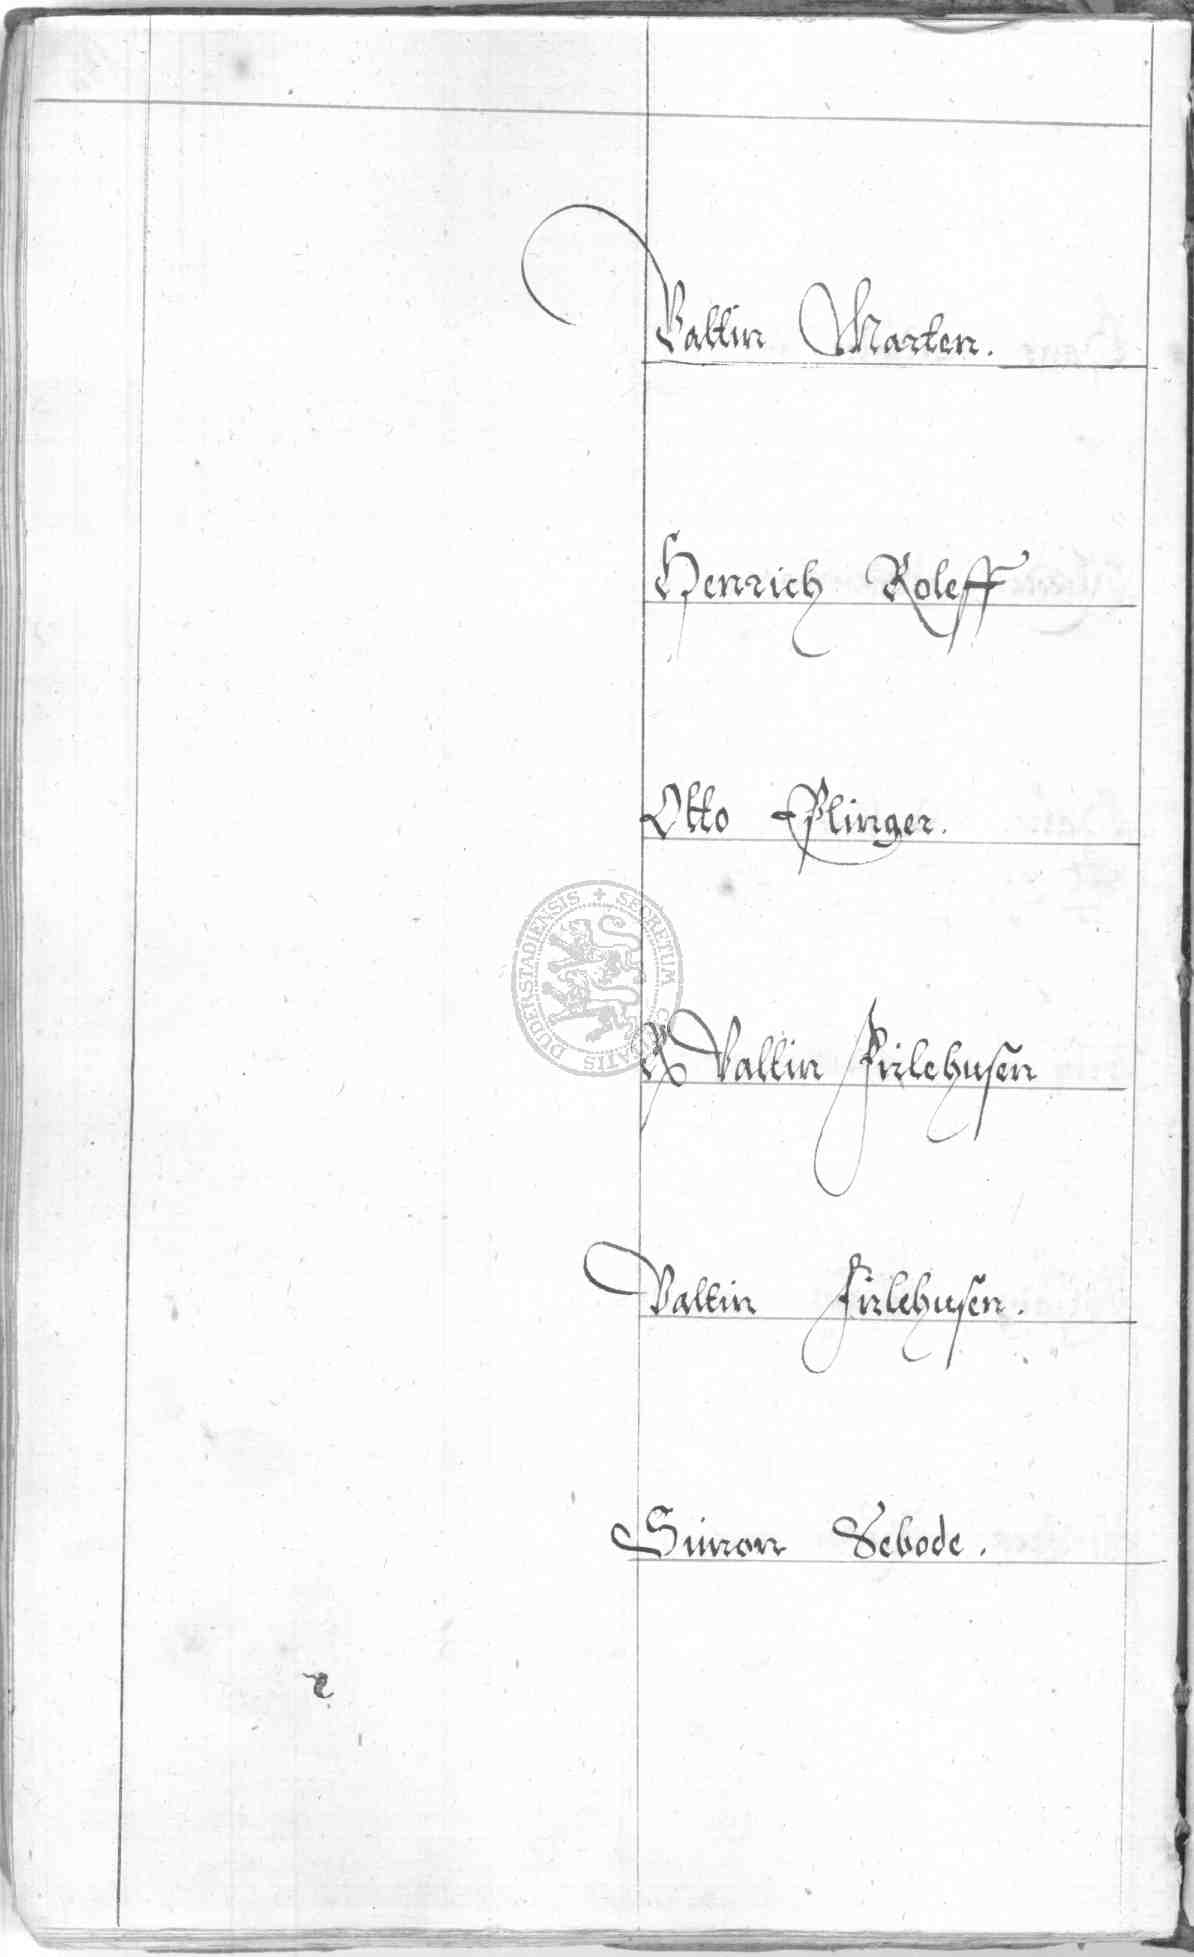 Valtin Marten.
Henrich Roleff
Otto Plinger.
SECRETUM CIVITATIS DUDERSTADIENSIS
Valtin Jirlehusen
Valtin Jirlehusen.
Simon Sebode.